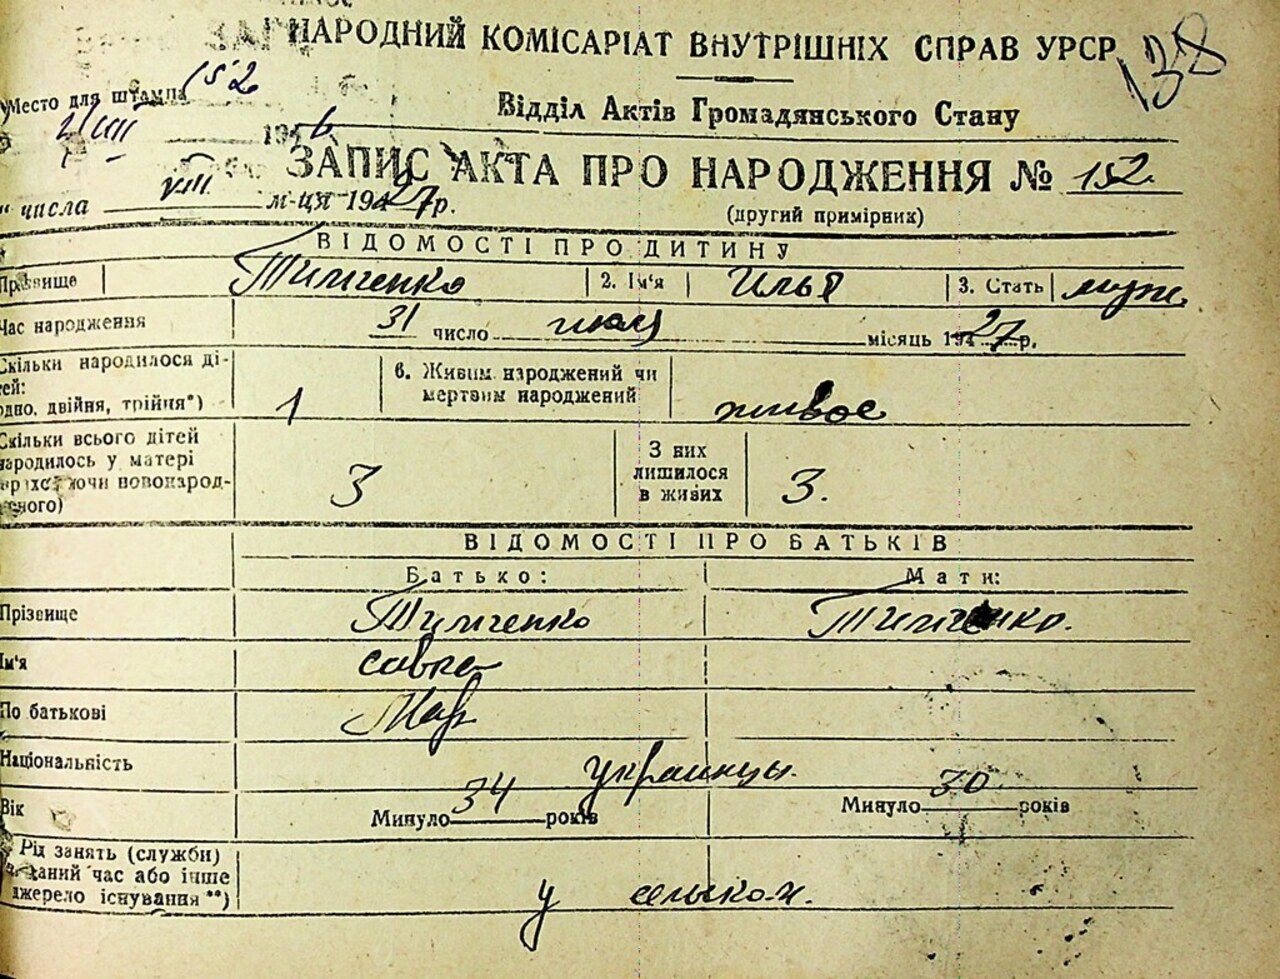 НАРОДНИЙ КОМІСАРІАТ ВНУТРІШНІХ СПРАВ УРСР
138
Место для штампа 152
Відділ Актів Громадянського Стану
VIII
194
ЗАПИС АКТА ПРО НАРОДЖЕННЯ № 152.
" числа VIII м-ця 1927 р.
(другий примірник)
ВІДОМОСТІ ПРО ДИТИНУ
Прізвище Тимченко 2. Ім'я Илья 3. Стать муж.
Час народження 31 число июля місяць 1927 р.
Скільки народилося ді-
тей:
одно, двійня, трійня*) 1 6. Живим народжений чи
мертвим народжений живое
Скільки всього дітей
народилось у матері
новонарод-
женого) 3 З них
лишилося
в живих 3.
ВІДОМОСТІ ПРО БАТЬКІВ
Батько: Мати:
Прізвище Тимченко Тимченко.
Ім'я Савка
По батькові Мар
Національність Украинцы.
Вік Минуло 34 років Минуло 30 років
Рід занять (служби)
даний час або інше
джерело існування **) у сельхоз.